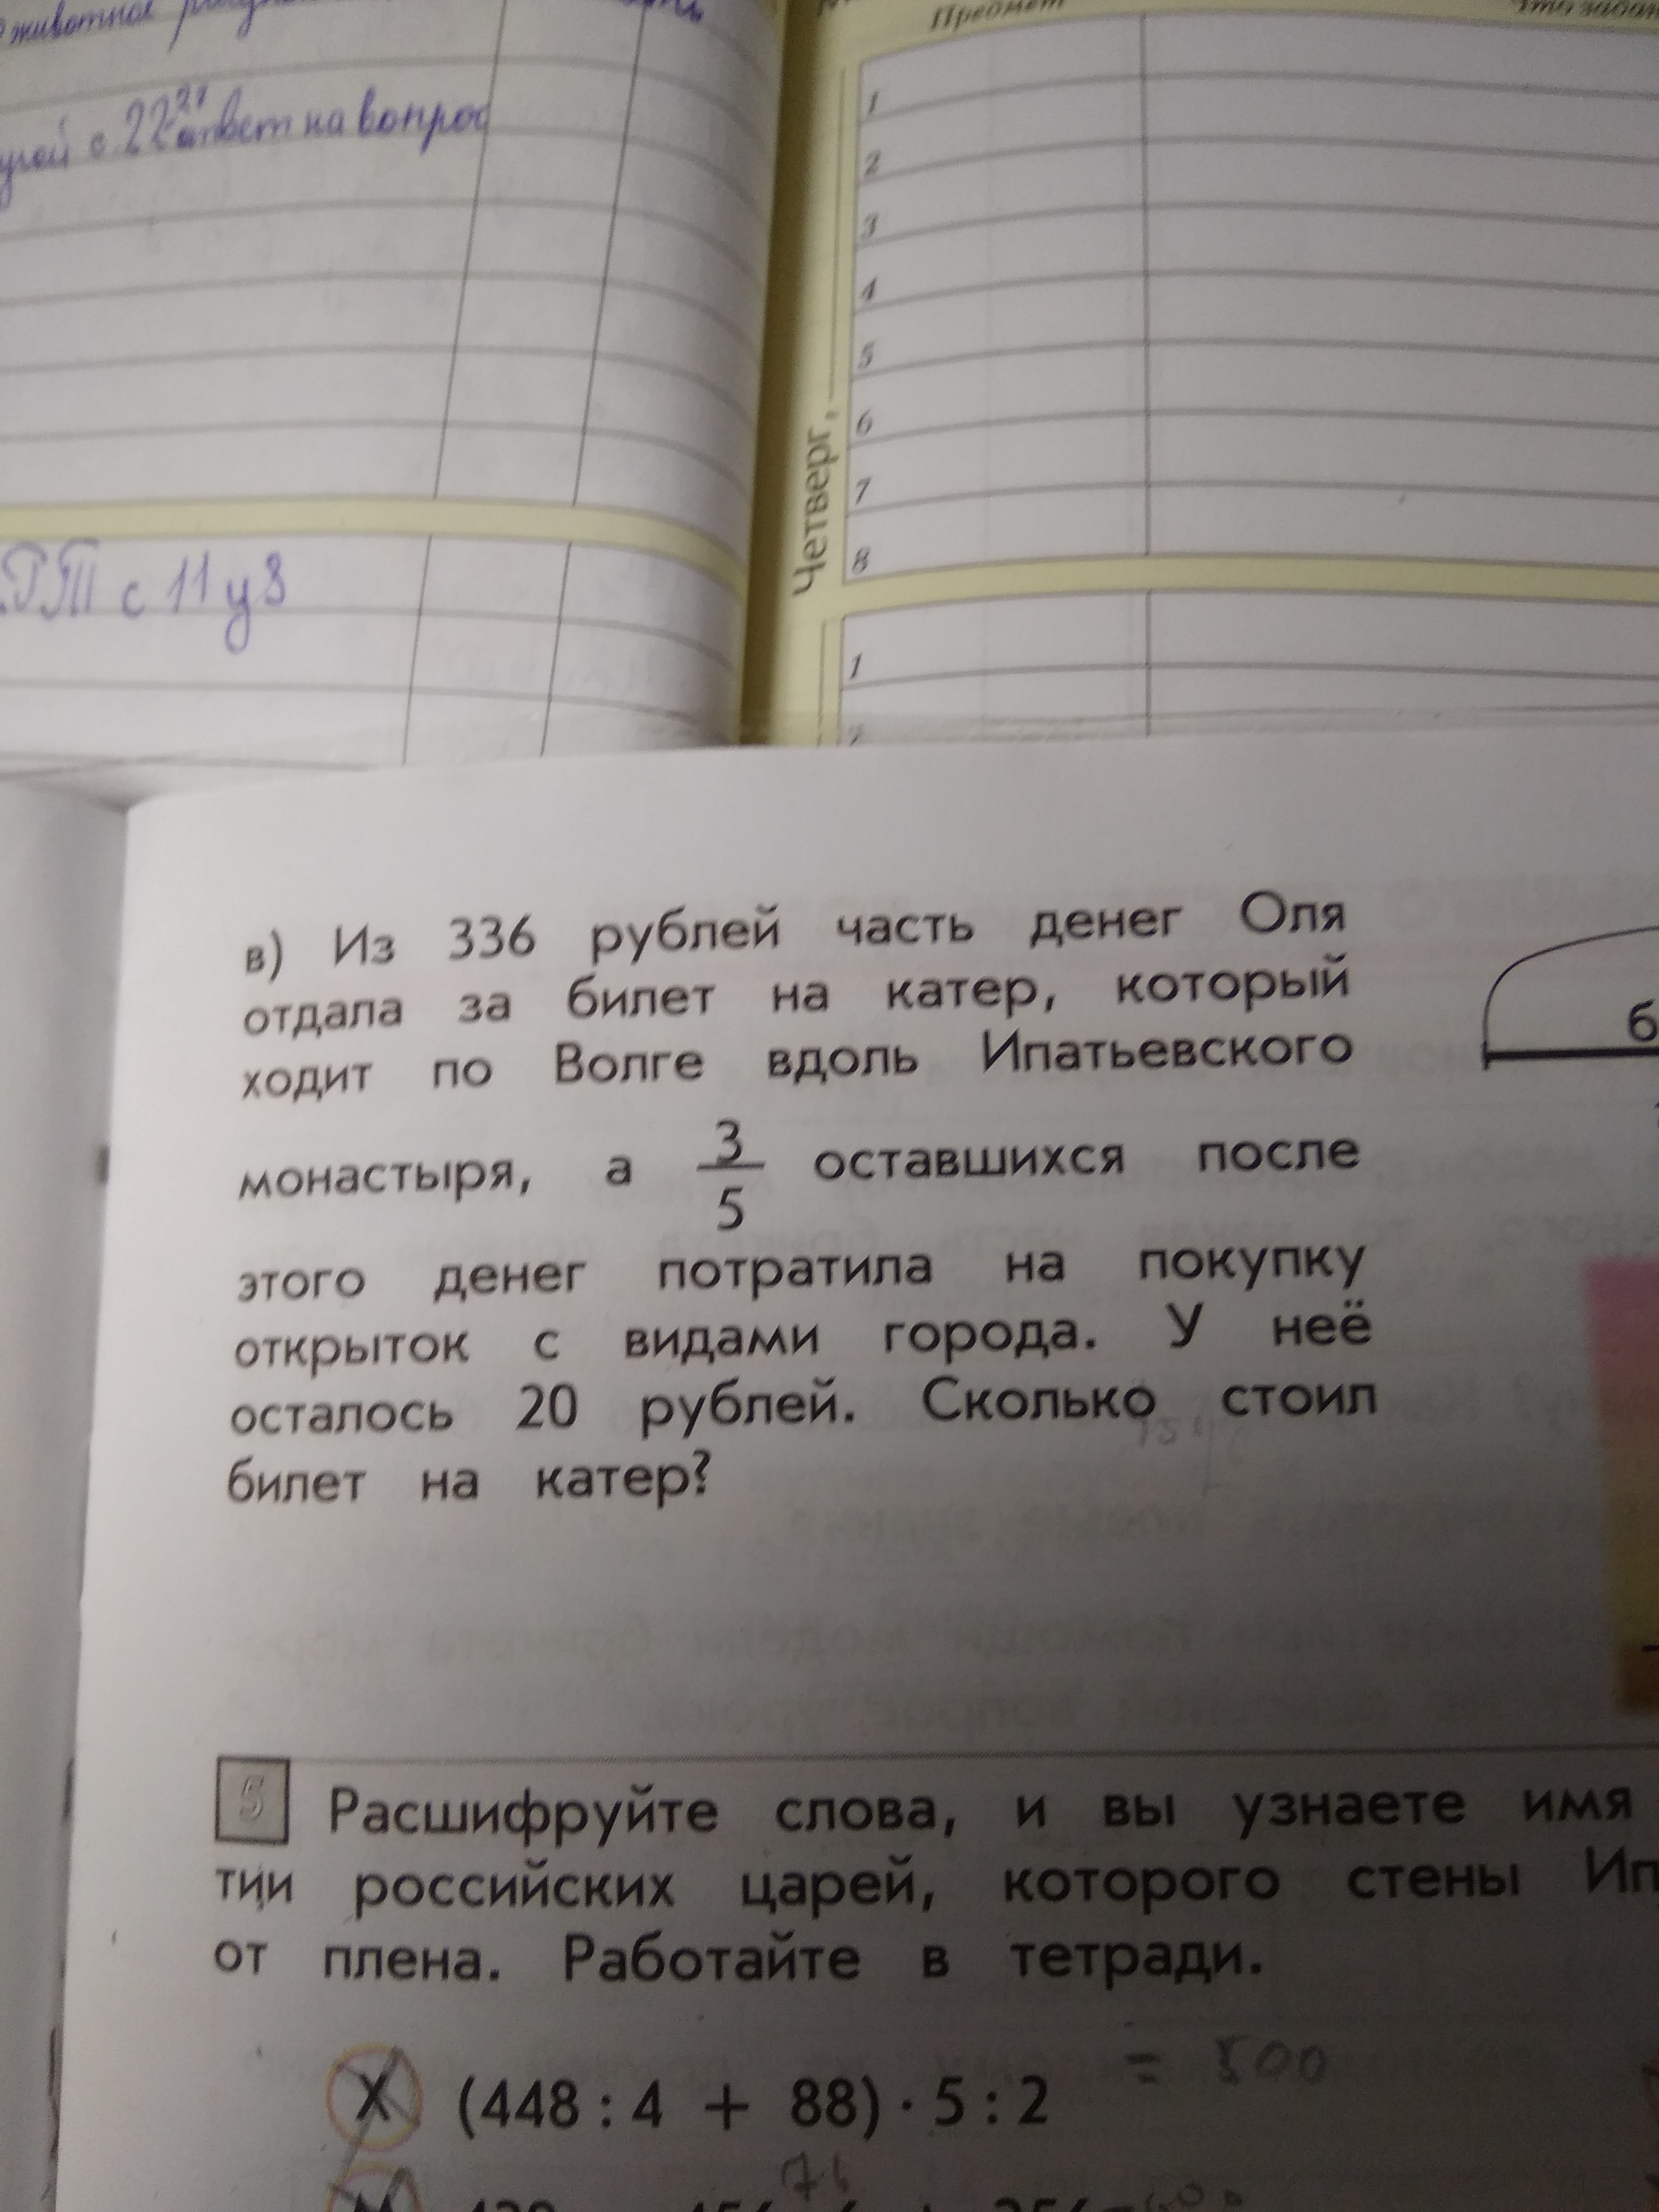 животное
Предмет
с 22 21 ответ на вопрос
1
2
3
4
5
6
7
8
Четверг,
РТ с 11 у 3
1
2
в) Из 336 рублей часть денег Оля
отдала за билет на катер, который
ходит по Волге вдоль Ипатьевского
монастыря, а 3/5 оставшихся после
этого денег потратила на покупку
открыток с видами города. У неё
осталось 20 рублей. Сколько стоил
билет на катер?
б
5 Расшифруйте слова, и вы узнаете имя
тии российских царей, которого стены Ип
от плена. Работайте в тетради.
Х (448 : 4 + 88) · 5 : 2 = 500